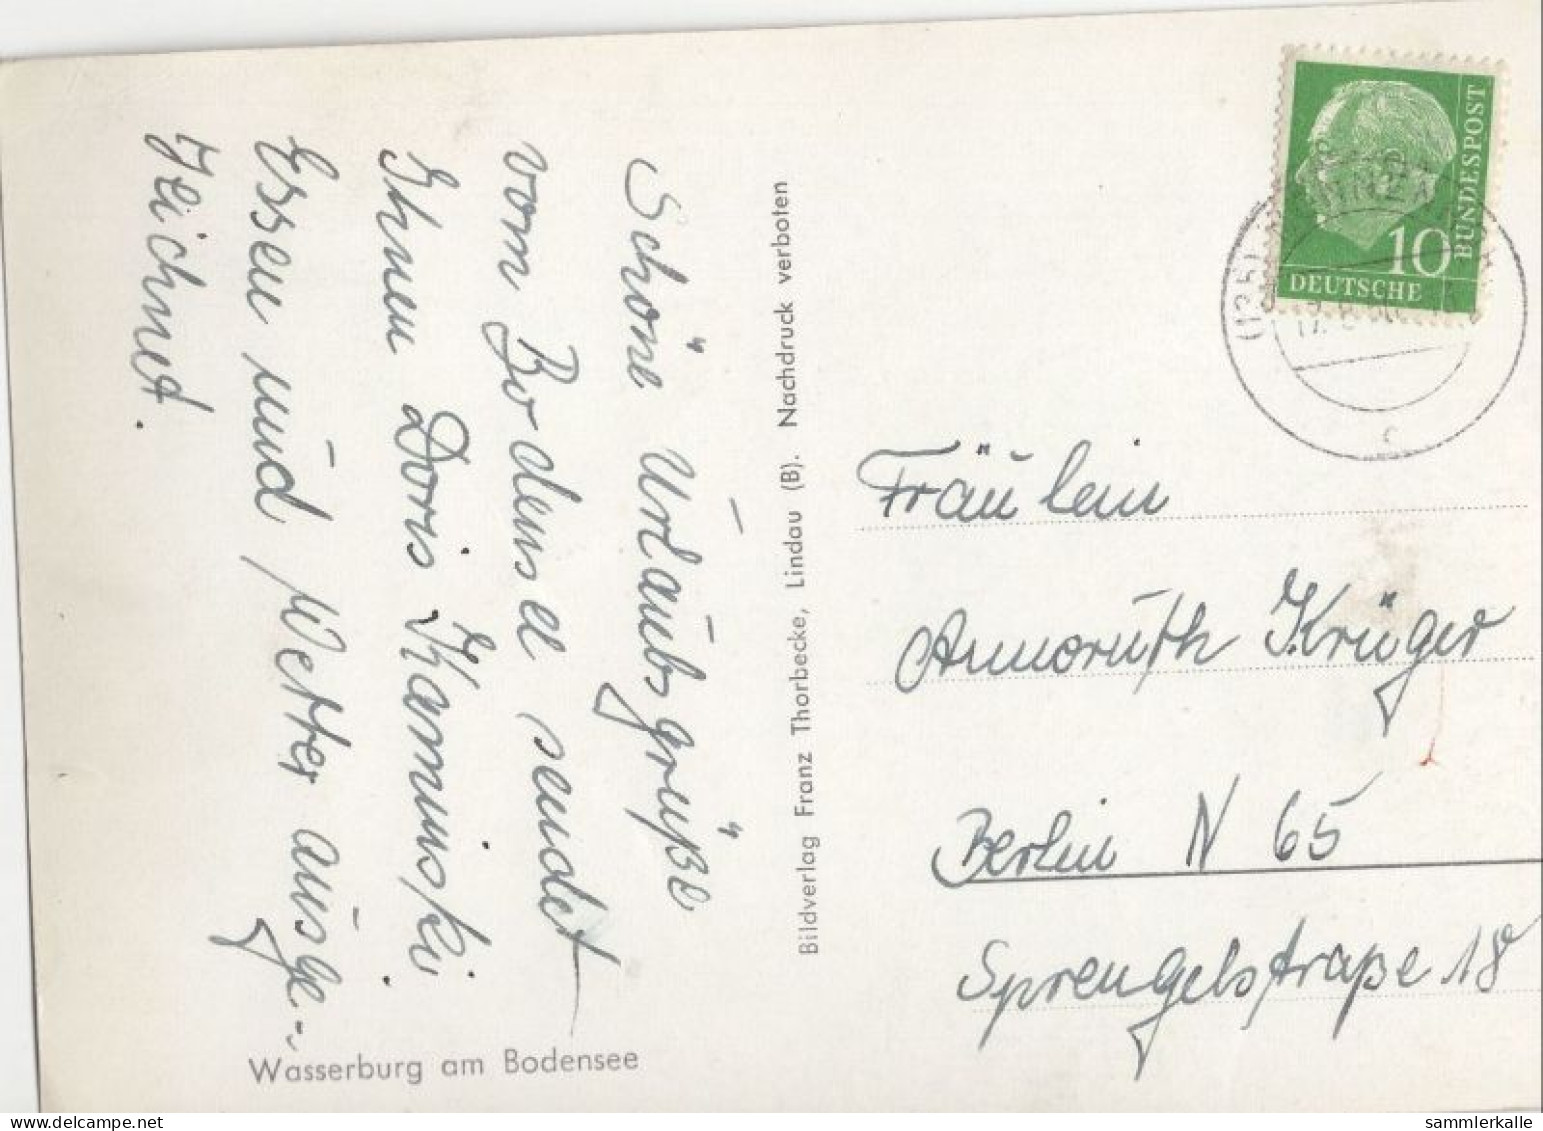 Schöne Urlaubsgrüße
vom Bodensee sendet
Ihnen Doris Kaminski.
Essen und Wetter ausge-
zeichnet.
Wasserburg am Bodensee
Bildverlag Franz Thorbecke, Lindau (B). Nachdruck verboten
DEUTSCHE
BUNDESPOST
10
c
Fräulein
Annoruth Krüger
Berlin N 65
Sprengelstraße 18
sammlerkalle